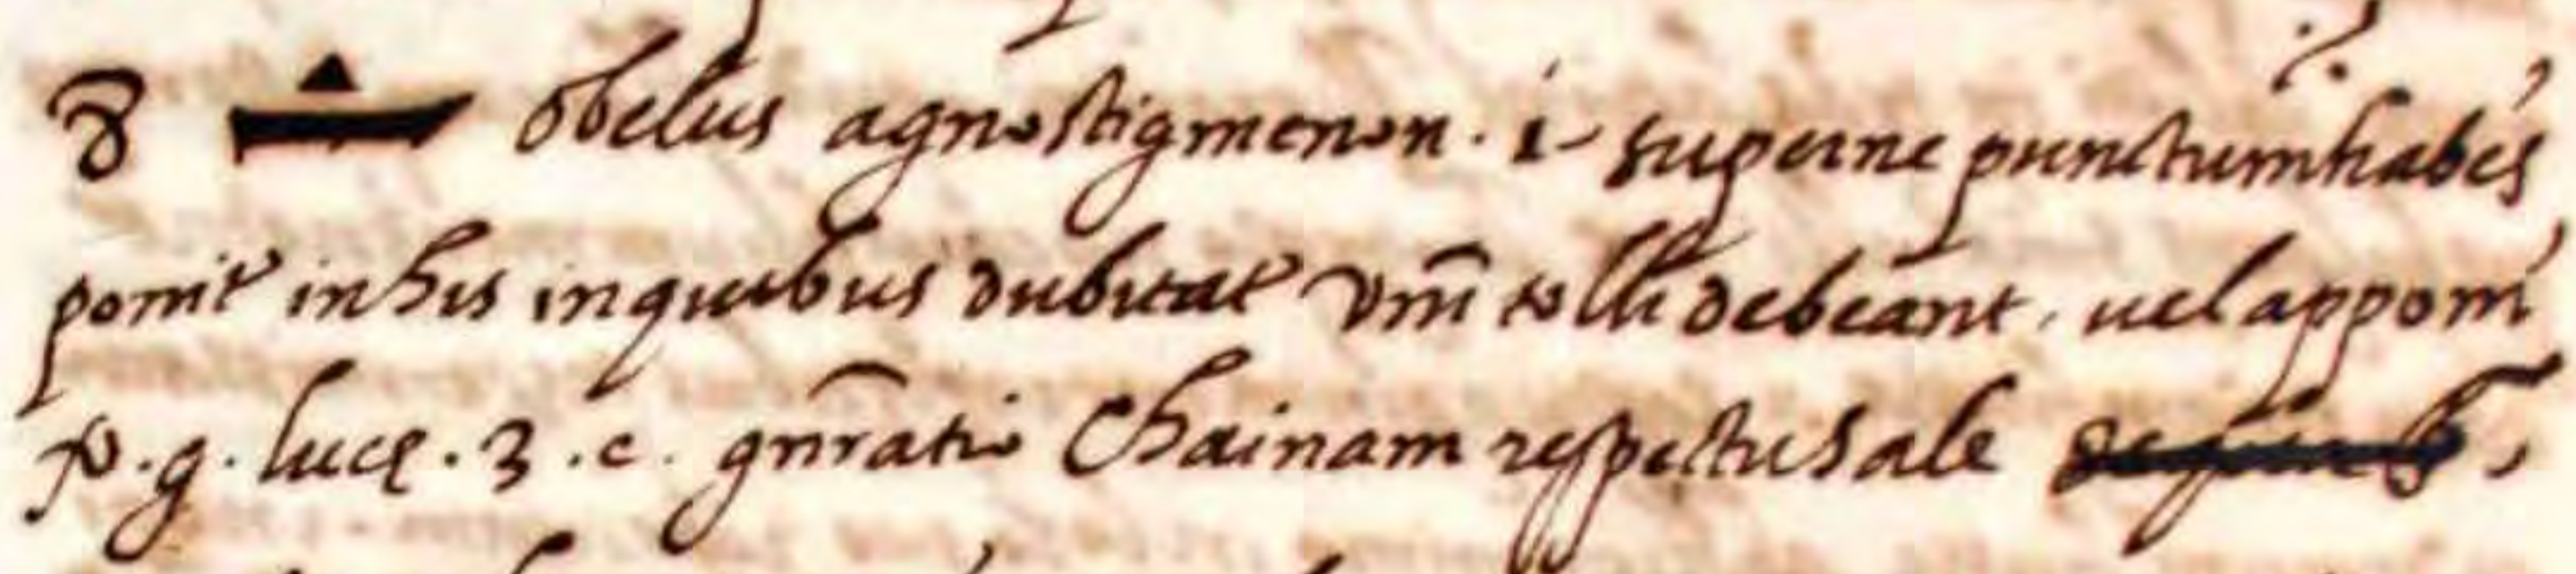 8 ∸ obelus agnostigmenon. i. superne punctumhabēs
ponit᷑ in his inquibus dubitat᷑ Vm̄ tolli debeant, uel apponi
v. g. lucę. 3. c. gn̄ratio Chainam respectu Sale